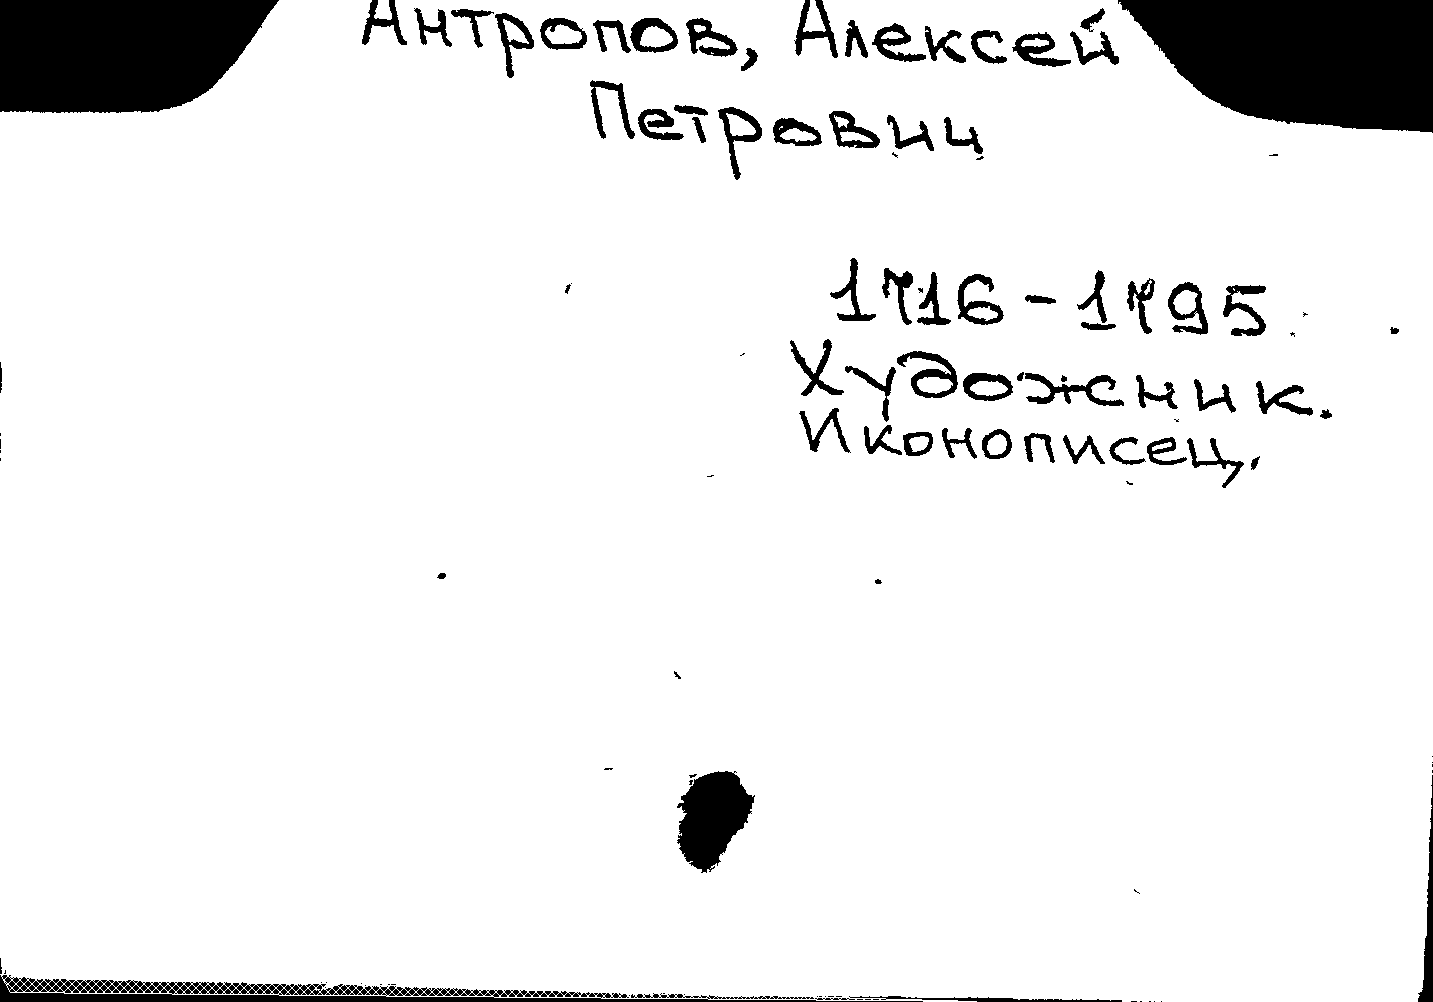 Антропов, Алексей
Петрович
1716-1795
Художник.
Иконописец.